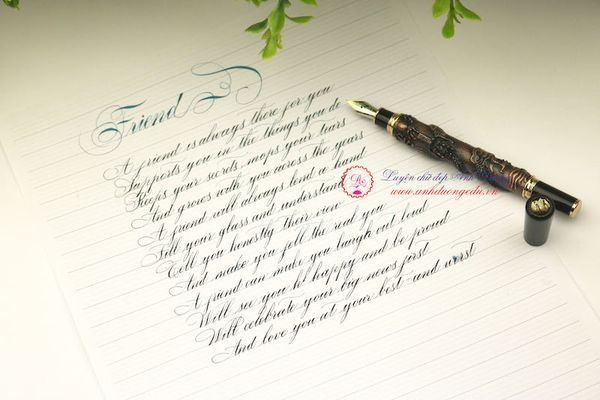 Friend
A friend is always there for you
Supports you in the things you do
Keeps your secrets, mops your tears
And grows with you across the years
A friend will always lend a hand
Fill your glass and understand
Tell you honestly their view
And make you fell the real you
A friend can make you laugh out loud
Will see you h' happy and be proud
Will celebrate your big news first
And love you at your best - and worst
Luyện chữ đẹp Ánh
www.anhduongedu.vn